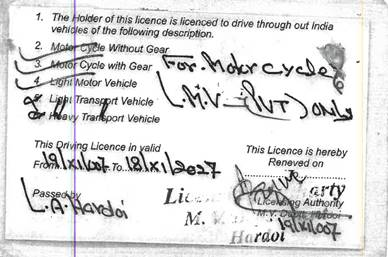 1. The Holder of this licence is licenced to drive through out India
vehicles of the following description.
2. Motor Cycle Without Gear
3. Motor Cycle with Gear
For. Motor cycle &
4. Light Motor Vehicle
L.M.V-(PVT) ONLY
5. Light Transport Vehicle
Heavy Transport Vehicle
This Driving Licence in valid
From 19/XI/007 To 18/XI/2027
This Licence is hereby
Reneved on
Passed by
L.A. Hardoi
arty
Licensing Authority
M.
Hardoi
19/XI/007